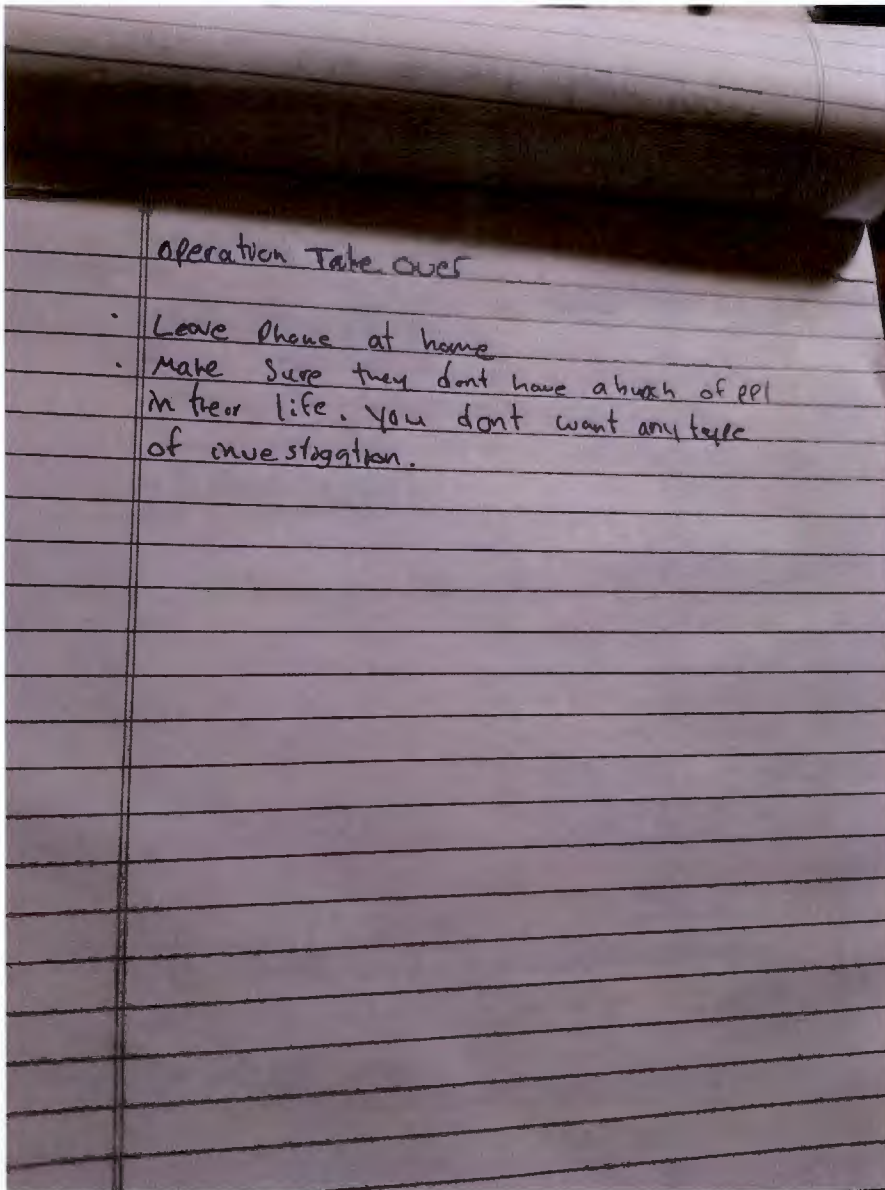 operation Take over
· Leave Phone at home
· Make Sure they dont have a bunch of ppl
in their life. you dont want any type
of investigation.